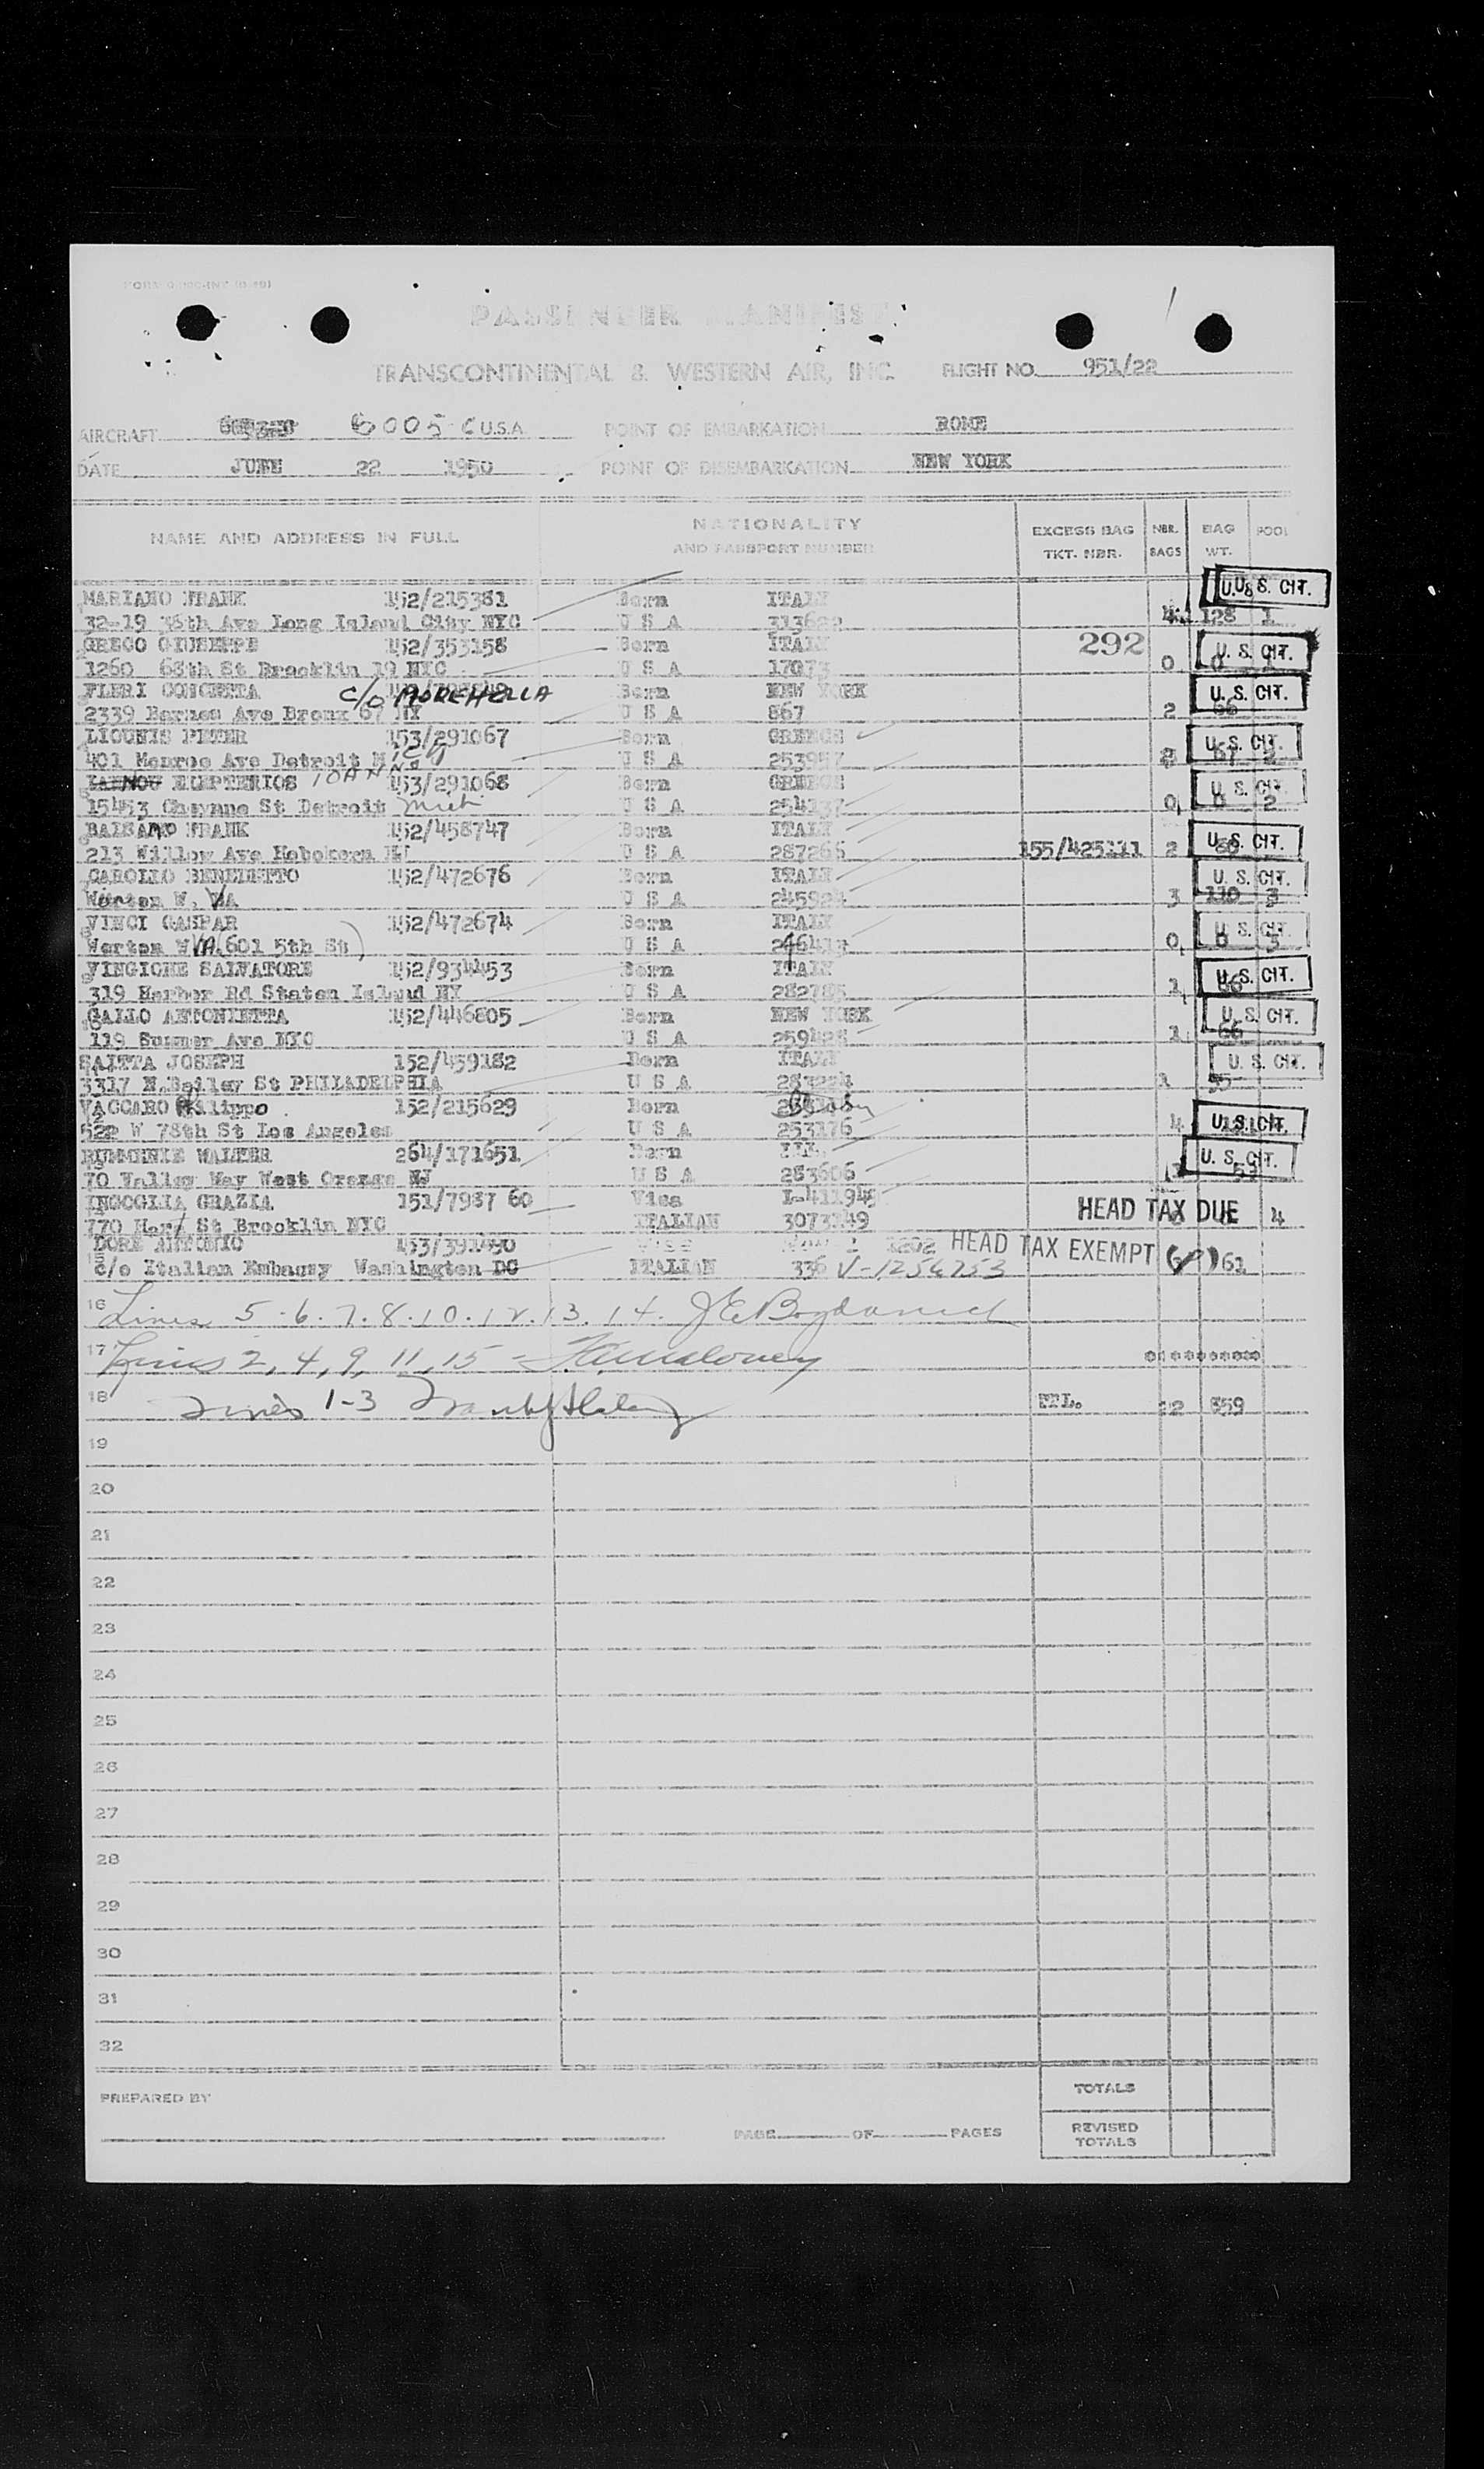 PASSENGER MANIFEST
TRANSCONTINENTAL & WESTERN AIR, INC. FLIGHT NO. 951/22
AIRCRAFT 6005 C U.S.A. POINT OF EMBARKATION ROME
DATE JUNE 22 1950 POINT OF DISEMBARKATION NEW YORK
NAME AND ADDRESS IN FULL NATIONALITY AND PASSPORT NUMBER EXCESS BAG TKT. NBR. NBR. BAGS BAG WT. POOL
MARIANO FRANK 152/215381 Born ITALY U.S. CIT.
32-19 36th Ave Long Island City NYC U S A 4 128 1
GRECO GIUSEPPE 152/353158 Born ITALY 292 U. S. CIT.
1260 68th St Brooklin 19 NYC U S A 17073 0 0 1
FIERI CONCETTA c/o MOREHELLA Born NEW YORK U. S. CIT.
2339 Barnes Ave Bronx 67 NY U S A 867 2 66
LIOUNIS PETER 153/291067 Born GREECE U. S. CIT.
401 Monroe Ave Detroit Mich U S A 2
ELEFTERIOS 153/291068 Born GREECE U. S. CIT.
15453 Cheyene St Detroit Mich U S A 254137 0 0 2
BALSAMO FRANK 152/458747 Born ITALY U. S. CIT.
213 Willow Ave Hobokern NJ U S A 287266 155/425111 2
CAROLLO BENEDETTO 152/472676 Born ITALY U. S. CIT.
W. VA U S A 3 110 3
VINCI GASPAR 152/472674 Born ITALY U. S. CIT.
W VA (601 5th St) U S A 0 0 3
VINGIONE SALVATORE 152/934453 Born ITALY U. S. CIT.
319 Harbor Rd Staten Island NY U S A 282785 1
GALLO ANTONIETTA 152/446805 Born NEW YORK U. S. CIT.
119 Sumner Ave NYC U S A 259428 1 66
SAITTA JOSEPH 152/459182 Born ITALY U. S. CIT.
3317 N.Bailey St PHILADELPHIA U S A 283224 1 55
VACCARO Filippo 152/215629 Born
522 W 78th St Los Angeles U S A 253176 4 U.S. CIT.
WALTER 264/171651 Born U. S. CIT.
70 Valley Way West Orange NJ U S A 283606
INGOGLIA GRAZIA 151/7987 60 Visa I-411948
770 Hart St Brocklin NYC ITALIAN 3073149 HEAD TAX DUE 4
DORE ANTONIO 153/391490 HEAD TAX EXEMPT
c/o Italian Embassy Washington DC ITALIAN 336 V-1254753 61
16 Lines 5.6.7.8.10.12.13.14.
17 Lines 2, 4, 9, 11, 15 -
18 Lines 1-3 TTL. 22 859
19
20
21
22
23
24
25
26
27
28
29
30
31
32
PREPARED BY TOTALS
PAGE OF PAGES REVISED TOTALS